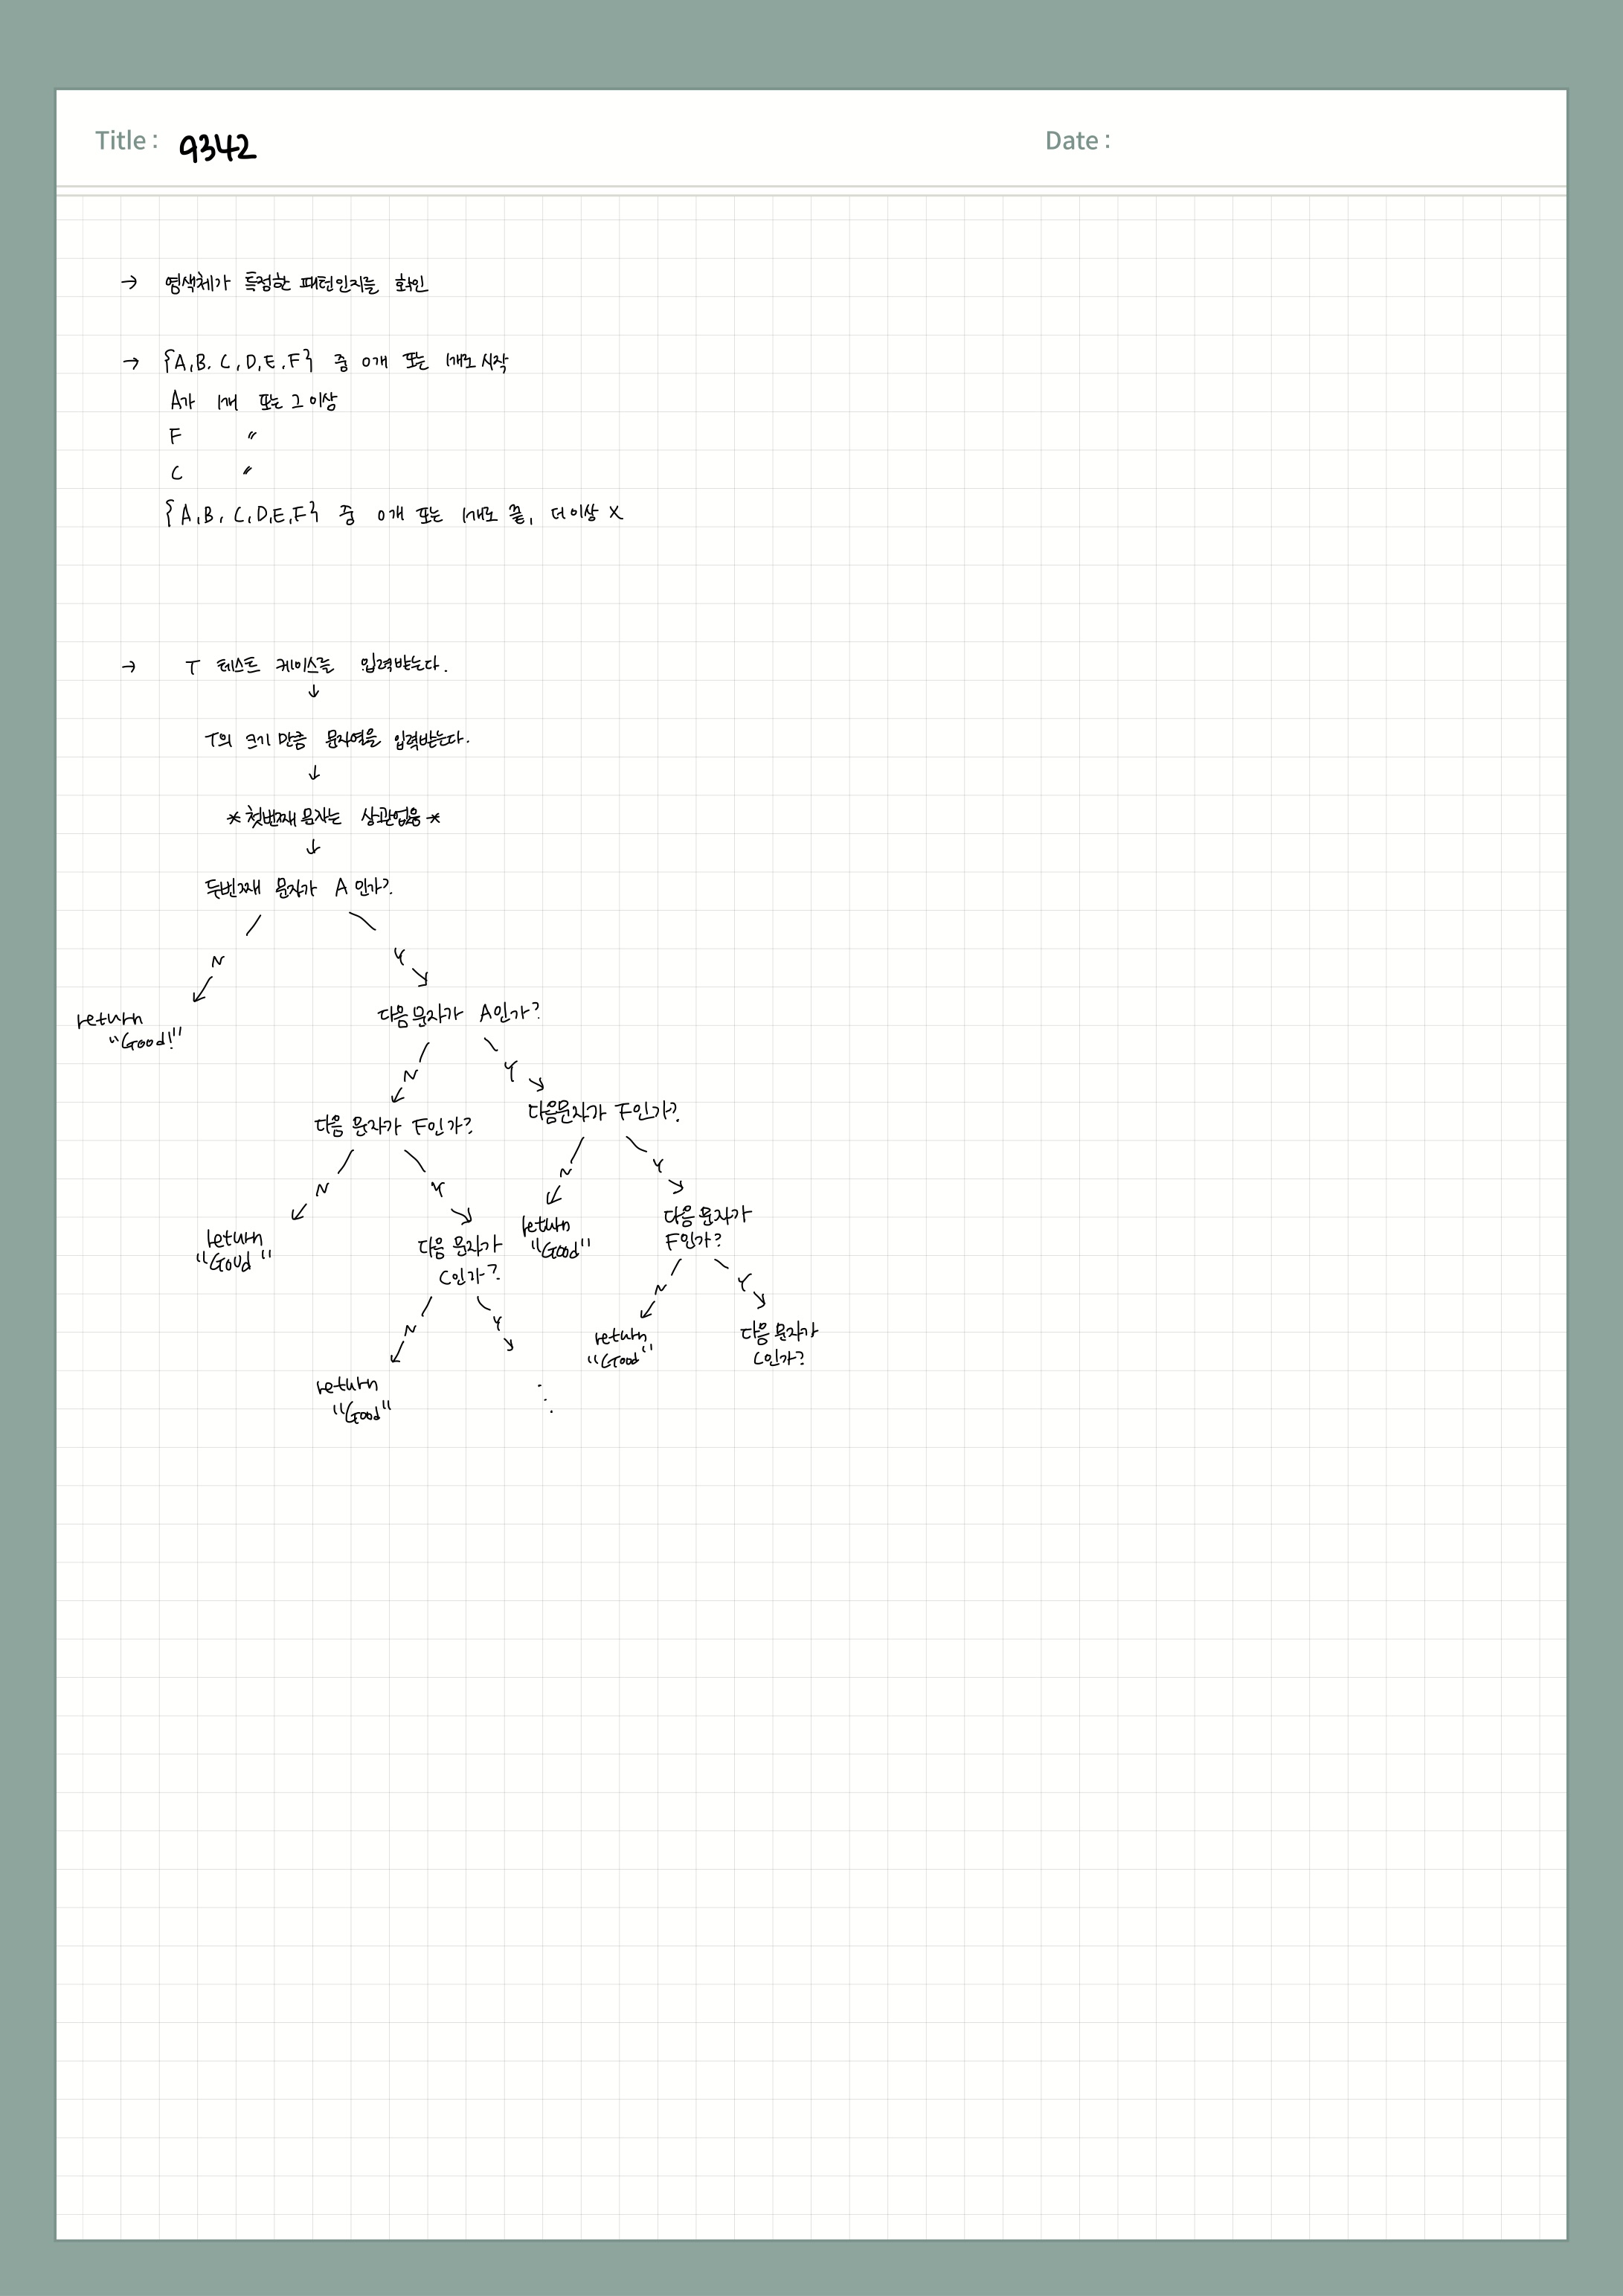 Title : 9342
Date :
→ 염색체가 특정한 패턴인지를 확인
→ {A,B.C,D,E,F} 중 0개 또는 1개로 시작
A가 1개 또는 그 이상
F 〃
C 〃
{A,B,C,D,E,F} 중 0개 또는 1개로 끝, 더이상 X
→ T 테스트 케이스를 입력받는다.
↓
T의 크기 만큼 문자열을 입력받는다.
↓
* 첫번째 문자는 상관없음 *
↓
두번째 문자가 A 인가?
N Y
return "Good!"
다음 문자가 A인가?
N Y
다음 문자가 F인가?
다음문자가 F인가?
N Y
N Y
return "Good"
다음 문자가 C인가?
return "Good"
다음 문자가 F인가?
N Y
N Y
return "Good"
⋱
return "Good"
다음 문자가 C인가?